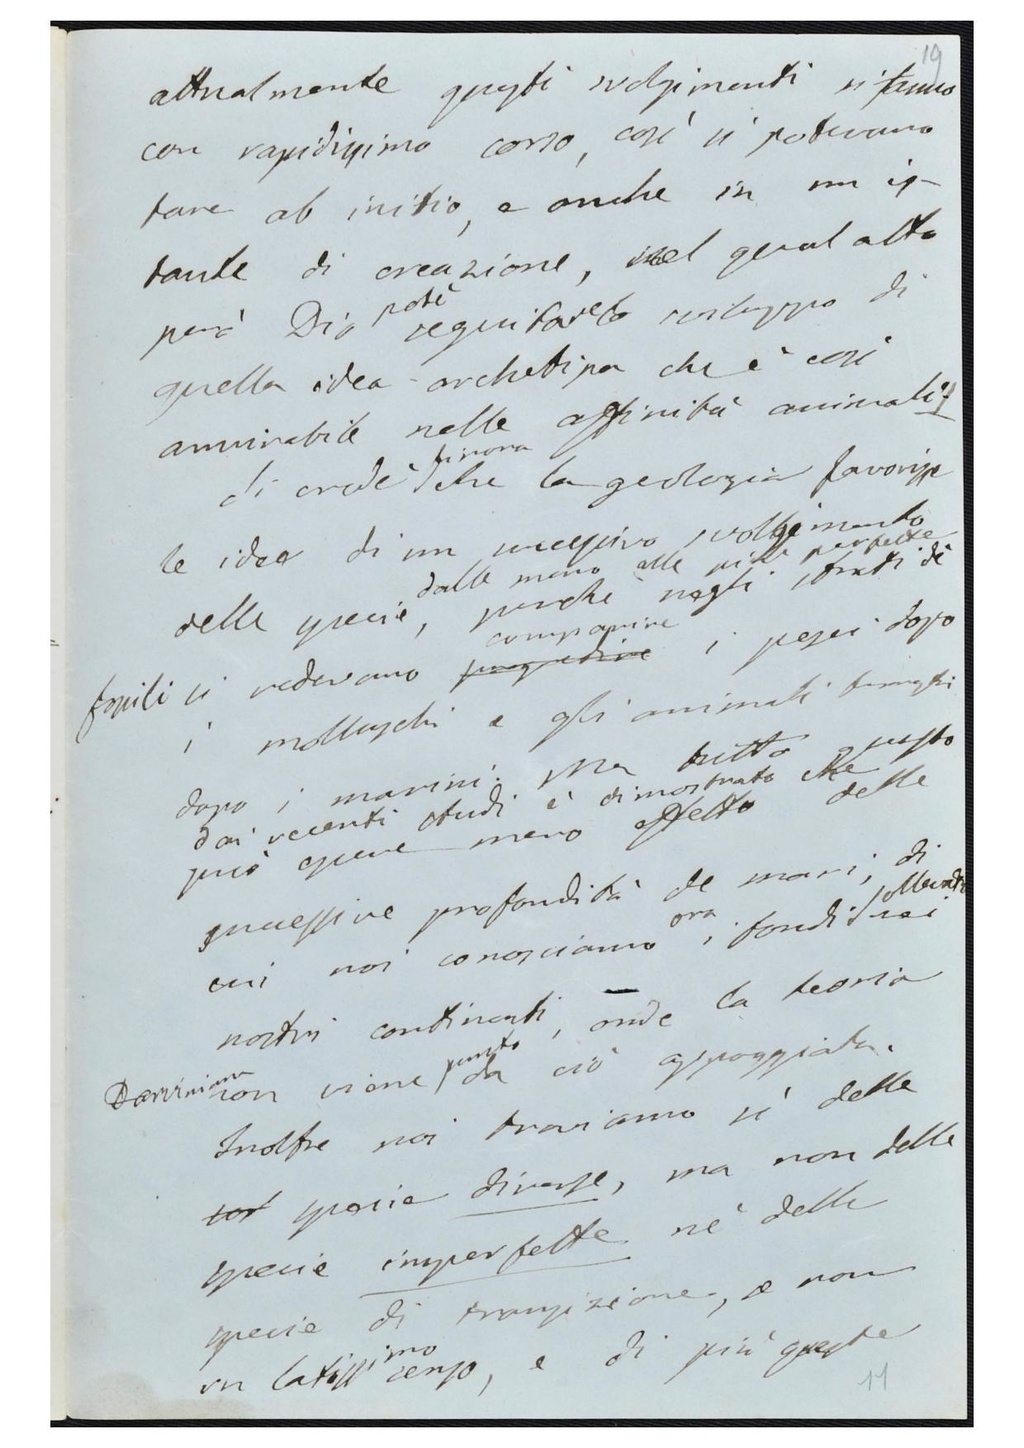 19
attualmente questi svolgimenti si fanno
con rapidissimo corso, così si potevano
fare ab initio, e anche in un is-
tante di creazione, nel qual atto
però Dio potè seguitare lo sviluppo di
quella idea archetipa che è così
ammirabile nelle affinità animali.
Si credè finora che la geologia favorisse
le idee di un successivo svolgimento
dalle meno alle più perfette
delle specie, perchè negli strati di
comparire
fossili si vedevano progredire i pesci dopo
i molluschi e gli animali terrestri
dopo i marini. Ma tutto questo
dai recenti studi è dimostrato che
può essere mero effetto delle
successive profondità de mari, di
cui noi conosciamo ora i fondi sollevati nei
nostri continenti, onde la teoria
Darwiniana non viene punto da ciò appoggiata.
Inoltre noi troviamo sì delle
specie diverse, ma non delle
specie imperfette nè delle
specie di transizione, e non
in latissimo senso, e di più queste
11